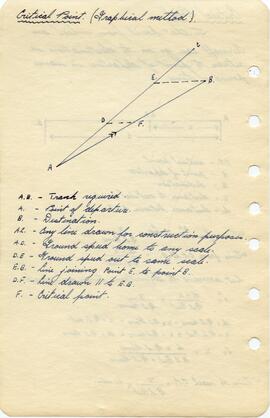 Critical Point. (Graphical method).
C
E
B.
D
F.
A
A.B. - Track required.
A. - Point of departure.
B. - Destination.
A.C. - Any line drawn for construction purposes.
A.D. - Ground speed home to any scale.
D.E - Ground speed out to same scale.
E.B. - line joining Point E. to point B.
D.F. - line drawn 11 to E.B.
F. - Critical point.